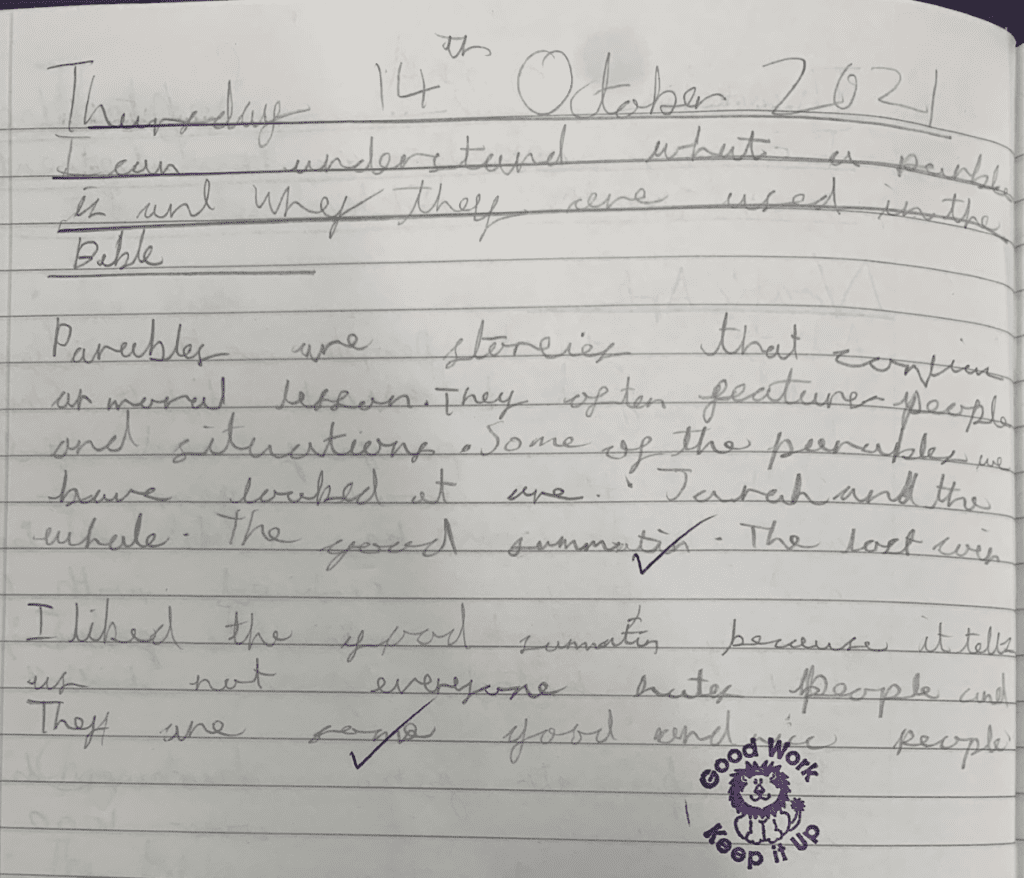 Thursday 14th October 2021
I can understand what a parable
is and Why they are used in the
Bible
Parables are storeies that contain
a moral lesson. They often feature people
and situations. Some of the parables we
have looked at are. Jarah and the
whale. The good summatin. The lost coin
I liked the good summatin because it tells
us not everyone hates people and
They are some good and nice people
Good Work
Keep it up